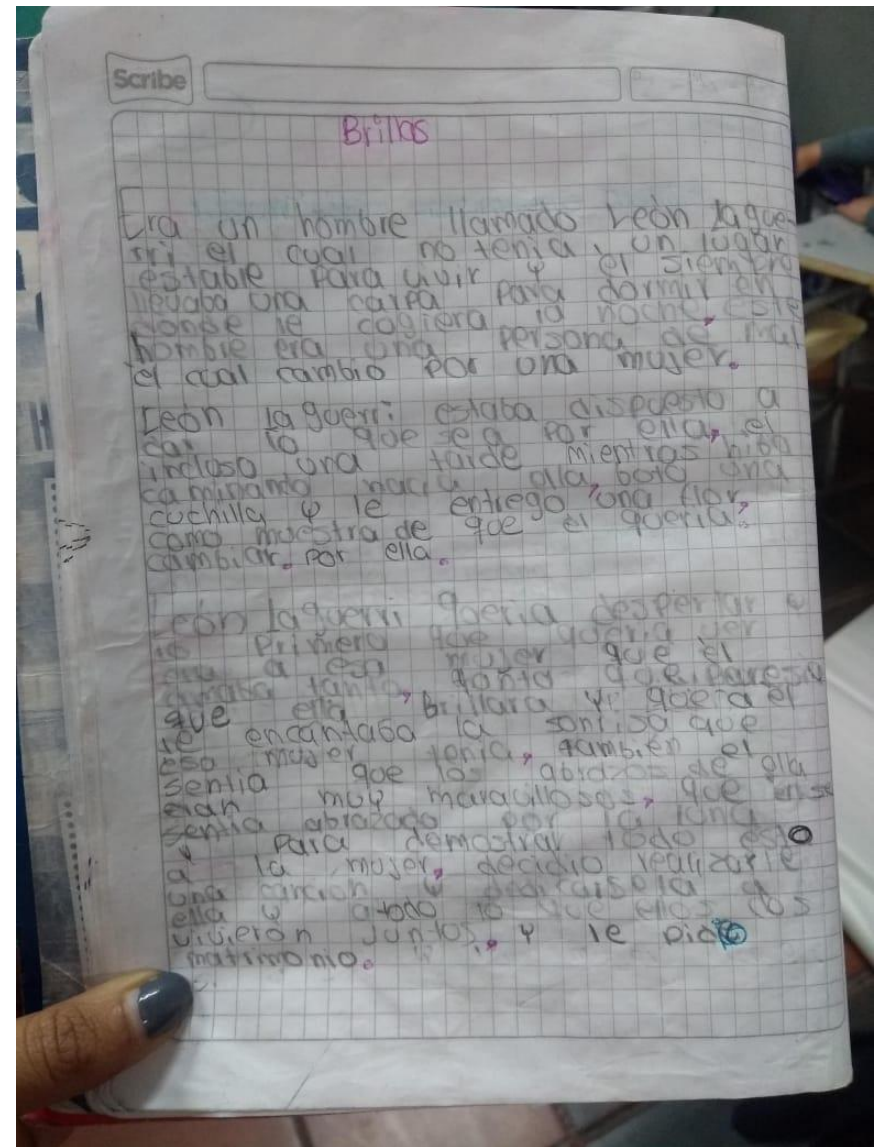 Scribe
Brillas
Era un hombre llamado León Lague-
rri el cual no tenia un lugar
estable para vivir y el siempre
llevaba una carpa para dormir en
donde le cogiera la noche, este
hombre era una persona de mal
el cual cambio por una mujer.
León Laguerri estaba dispuesto a
lo que sea por ella, el
incluso una tarde mientras hiba
caminando hacia alla, boto una
cuchilla y le entrego una flor,
como muestra de que el queria
cambiar. por ella.
León Laguerri queria despertar y
lo primero que queria ver
era a esa mujer que el
amaba tanto, tanto que paresia
que ella brillara y
le encantaba la sonrisa que
esa mujer tenia, tambien el
sentia que los abrazos de ella
eran muy maravillosos, que el se
sentia abrazado por la luna
y para demostrar todo esto
a la mujer, decidio realizarle
una cancion y a
ella y a todo lo que ellos dos
vivieron juntos, y le pidio
matrimonio.